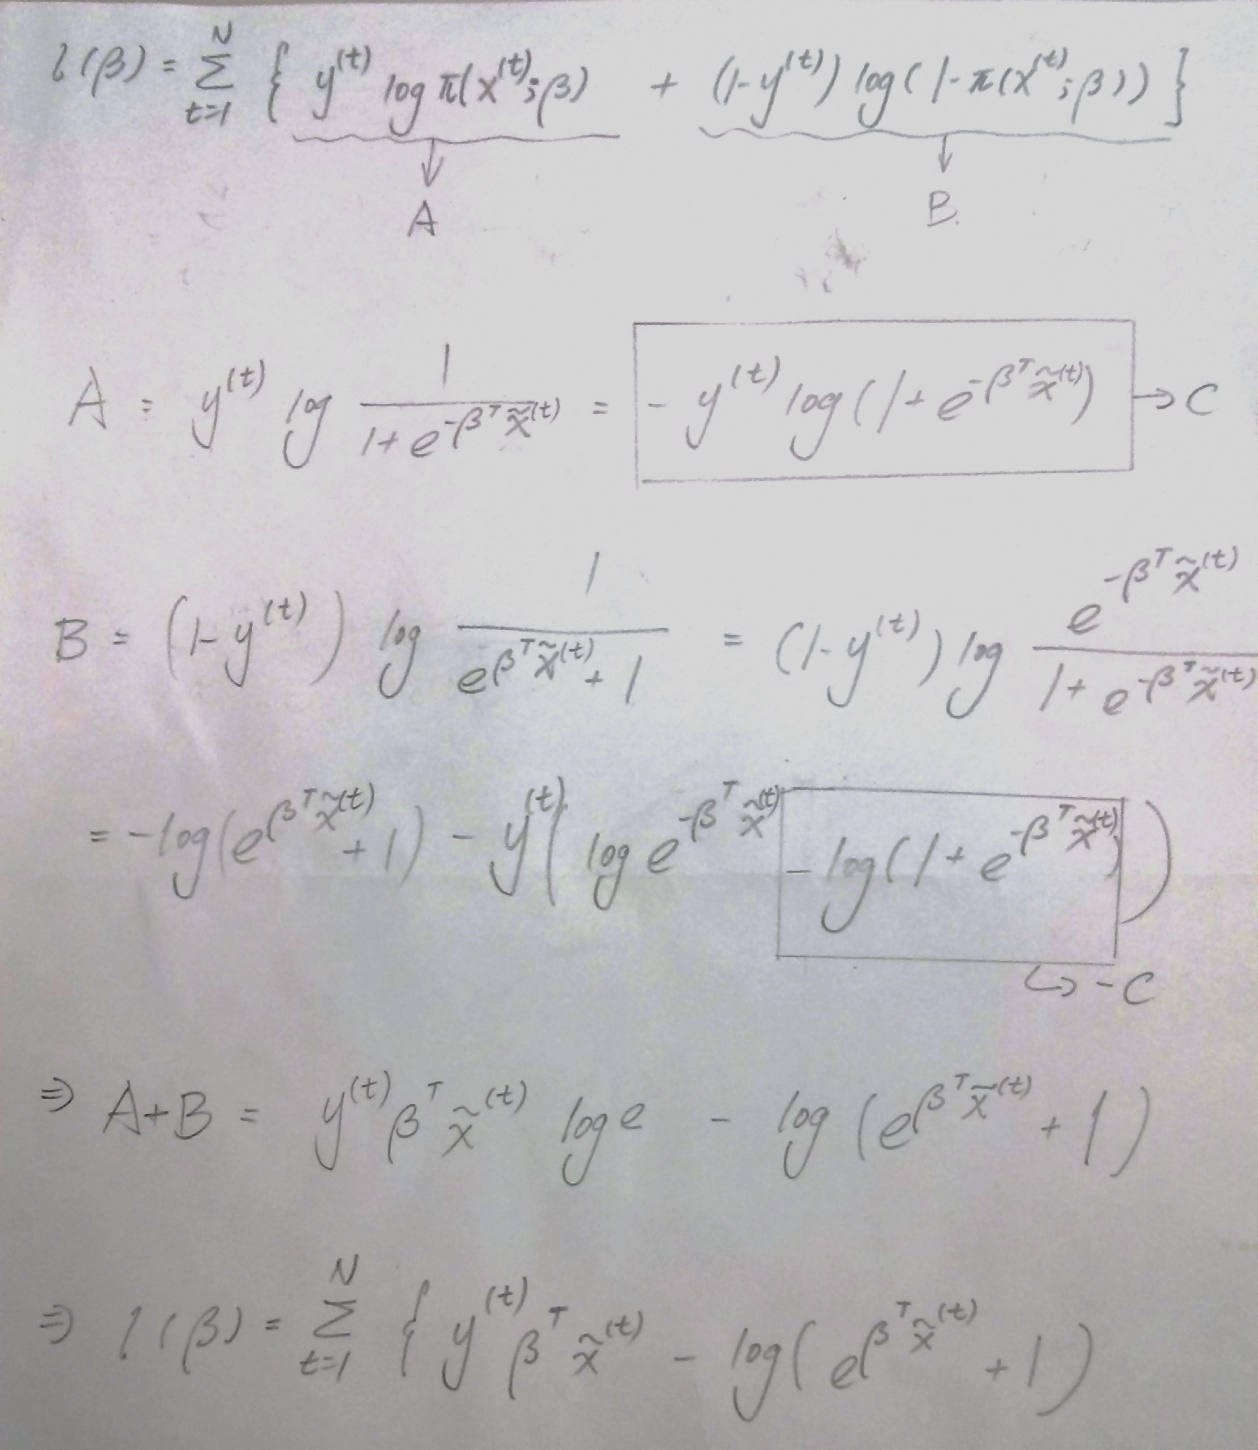 l(β) = Σ_{t=1}^{N} { y^{(t)} log π(x^{(t)};β) + (1-y^{(t)}) log(1-π(x^{(t)};β)) }
A B
A = y^{(t)} log 1/(1+e^{-β^T x̃^{(t)}}) = - y^{(t)} log(1+e^{-β^T x̃^{(t)}}) → C
B = (1-y^{(t)}) log 1/(e^{β^T x̃^{(t)}}+1) = (1-y^{(t)}) log e^{-β^T x̃^{(t)}}/(1+e^{-β^T x̃^{(t)}})
= -log(e^{β^T x̃^{(t)}}+1) - y^{(t)}( log e^{-β^T x̃^{(t)}} - log(1+e^{-β^T x̃^{(t)}}) )
↳ -C
⇒ A+B = y^{(t)} β^T x̃^{(t)} log e - log(e^{β^T x̃^{(t)}}+1)
⇒ l(β) = Σ_{t=1}^{N} { y^{(t)} β^T x̃^{(t)} - log(e^{β^T x̃^{(t)}}+1)